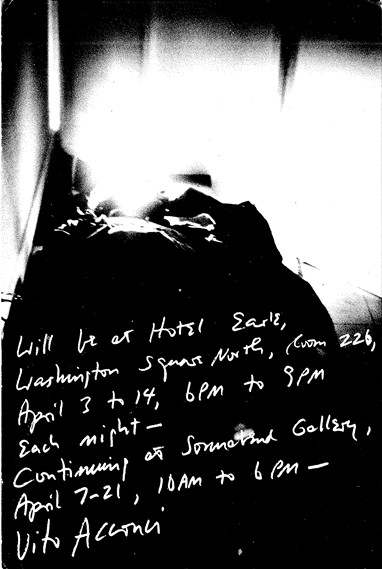 Will be at Hotel Earle,
Washington Square North, Room 226,
April 3 to 14, 6PM to 9PM
Each night—
Continuing at Sonnabend Gallery,
April 7-21, 10AM to 6PM—
Vito Acconci